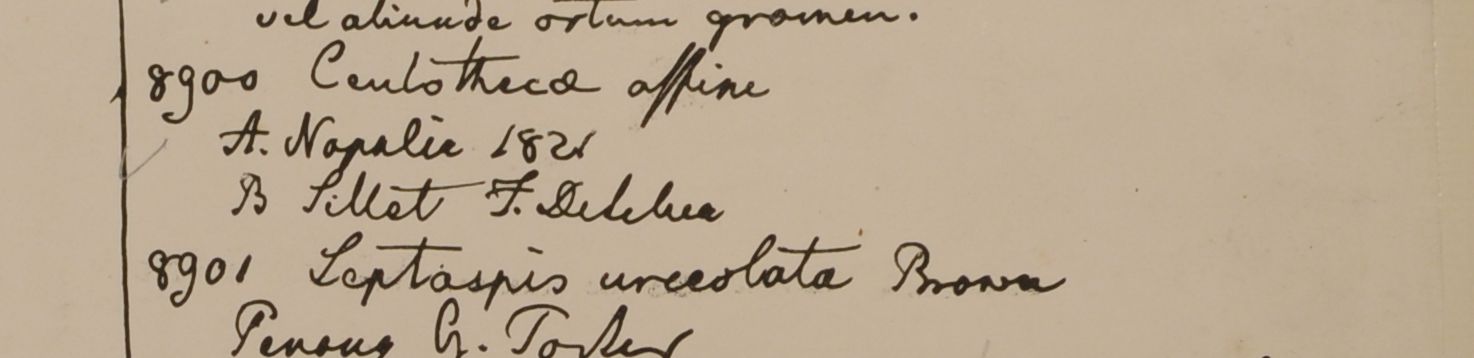 vel aliunde ortum gramen.
8900 Centothecæ affine
A. Napalia 1821
B Sillet F. De
8901 Leptaspis urceolata Brown
Penang G. Porter